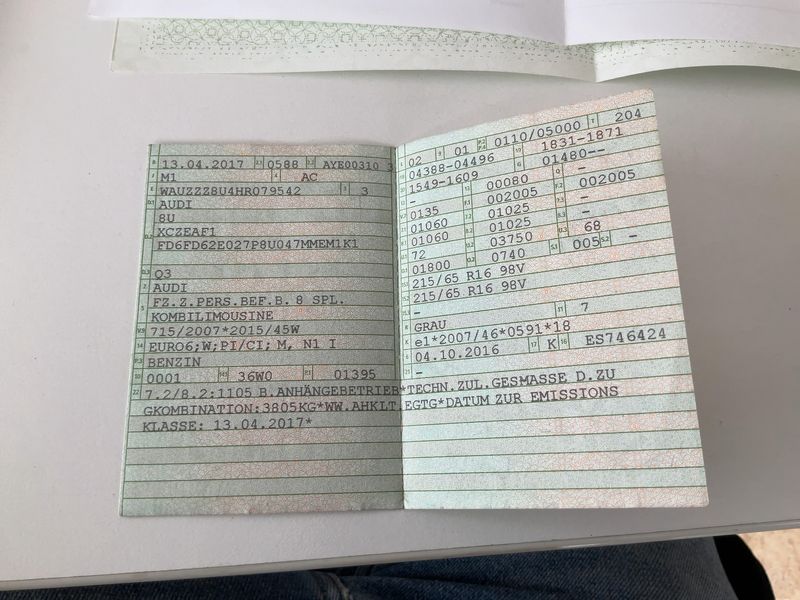 13.04.2017 0588 AYE00310 3
M1 AC
WAUZZZ8U4HR079542 3
AUDI
8U
XCZEAF1
FD6FD62E027P8U047MMEM1K1
Q3
AUDI
FZ.Z.PERS.BEF.B. 8 SPL.
KOMBILIMOUSINE
715/2007*2015/45W
EURO6;W;PI/CI; M, N1 I
BENZIN
0001 36W0 01395
7.2/8.2:1105 B.ANHÄNGEBETRIEB*TECHN.ZUL.GESMASSE D.ZU
GKOMBINATION:3805KG*WW.AHKLT.EGTG*DATUM ZUR EMISSIONS
KLASSE: 13.04.2017*
02 01 0110/05000 204
04388-04496 1831-1871
1549-1609 01480--
- 00080 -
0135 002005 002005
01060 01025 -
01060 01025 -
72 03750 68
01800 0740 005 -
215/65 R16 98V
215/65 R16 98V
-
GRAU 7
e1*2007/46*0591*18
04.10.2016 K ES746424
-